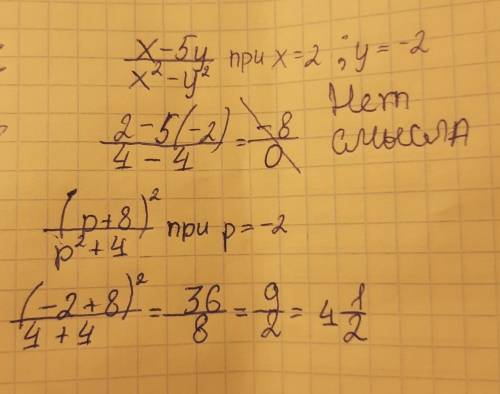 (x-5y)/(x²-y²) при x=2 ; y=-2
(2-5(-2))/(4-4) = -8/0 Нет смысла
(p+8)²/(p²+4) при p=-2
(-2+8)²/(4+4) = 36/8 = 9/2 = 4 1/2